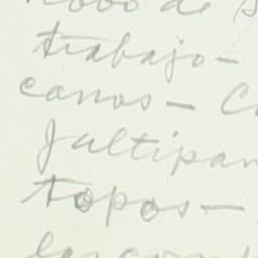 de
trabajo-
canos - C
Jaltipan
topos -